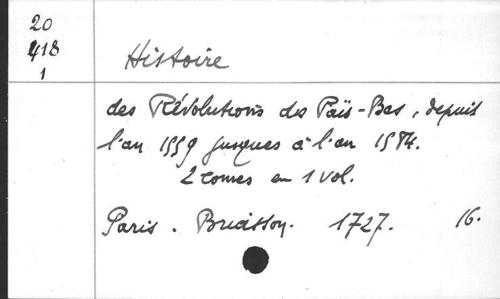 20
418
1
Histoire
des Révolutions des Païs-Bas, depuis
l'an 1559 jusques à l'an 1584.
2 tomes en 1 vol.
Paris. Briasson. 1727. 16.